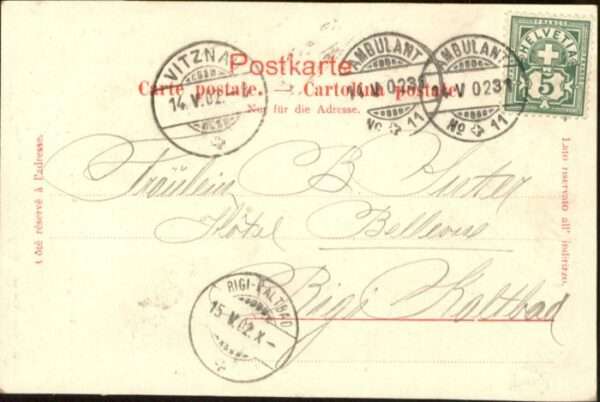 Postkarte
Carte postale. — Cartolina postale.
Nur für die Adresse.
VITZNAU
14.V.02.
AMBULANT
14.V.02
No 11
AMBULANT
V.02
No 11
FRANCO
HELVETIA
5
Côté réservé à l'adresse.
Lato riservato all' indirizzo.
Fräulein B. Suter
Hôtel Bellevue
Rigi Kaltbad
RIGI-KALTBAD
15.V.02.X-